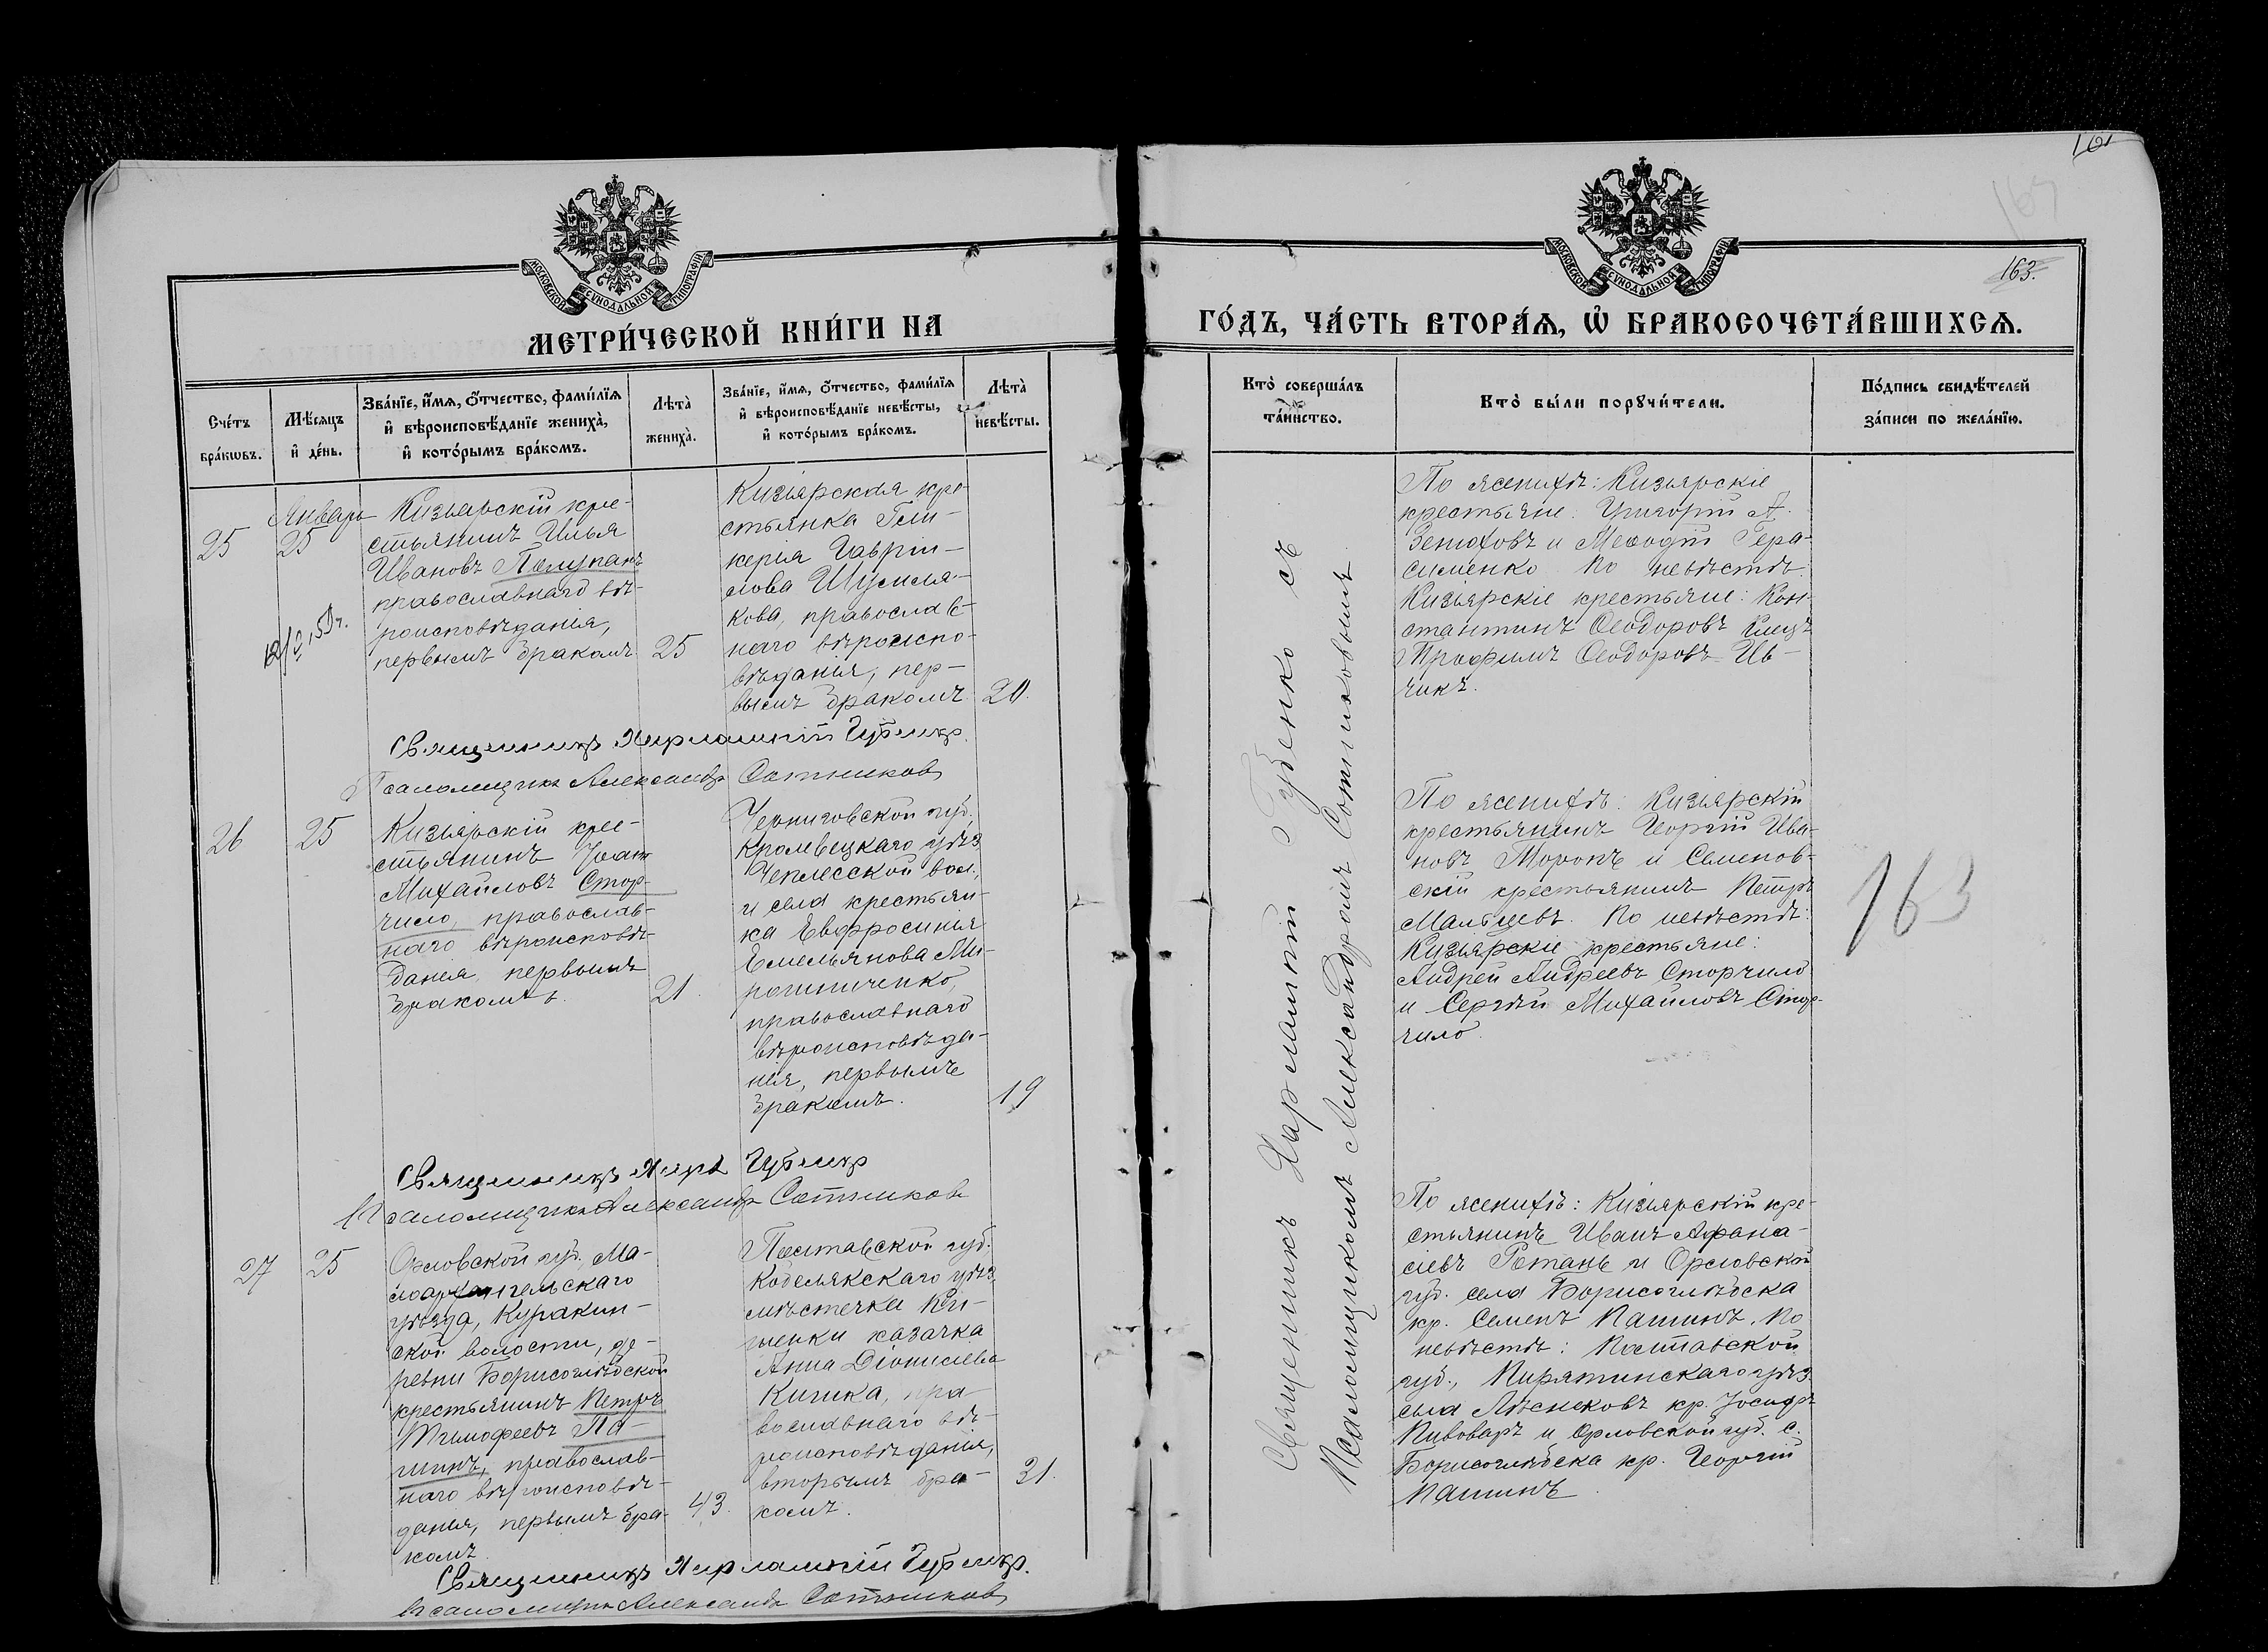 161
163.
МОСКОВСКОЙ СѴНОДАЛЬНОЙ ТИПОГРАФІИ
МОСКОВСКОЙ СѴНОДАЛЬНОЙ ТИПОГРАФІИ
МЕТРИ́ЧЕСКОЙ КНИ́ГИ НА
ГО́ДЪ, ЧА́СТЬ ВТОРА́Ѧ, Ѽ БРАКОСОЧЕТА́ВШИХСѦ.
Сче́тъ
бра́кωвъ.
Мѣ́сяцъ
и҆ де́нь.
Зва́нїе, и҆́мѧ, ѻ҆́тчество, фами́лїѧ
и҆ вѣроисповѣ́данїе жениха̀,
и҆ кото́рымъ бра́комъ.
Лѣта̀
жениха̀.
Зва́нїе, и҆́мѧ, ѻ҆́тчество, фами́лїѧ
и҆ вѣроисповѣ́данїе невѣ́сты,
и҆ кото́рымъ бра́комъ.
Лѣта̀
невѣ́сты.
Кто̀ соверша́лъ
та́инство.
Кто̀ бы́ли порꙋчи́тели.
По́дпись свидѣ́телей
за́писи по жела́нїю.
25
Январь
25
Кизіярскій кре-
стьянинъ Илья
Ивановъ Полупанъ
православнаго вѣ-
роисповѣданія,
первымъ бракомъ
25
Кизіярская кре-
стьянка Гли-
керія Гаврiи-
лова Шумиля-
кова, православ-
наго вѣроиспо-
вѣданія, пер-
вымъ бракомъ
20.
Священникъ Харлампій Губенко.
Псаломщикъ Александръ Сотниковъ
26
25
Кизіярскій кре-
стьянинъ Іоаннъ
Михайловъ Стор-
чило, православ-
наго вѣроисповѣ-
данія, первымъ
бракомъ.
21.
Черниговской губ.
Кролевецкаго уѣз.
вол.,
и села крестьян-
ка Евфросинія
Емельянова Ми-
рошниченко,
православнаго
вѣроисповѣда-
нія, первымъ
бракомъ.
19
Священникъ Харл. Губенко
Псаломщикъ Александръ Сотниковъ
27
25
Орловской губ. Ма-
лоархангельскаго
уѣзда, Куракин-
ской волости, де-
ревни Борисоглѣбской
крестьянинъ Петръ
Тимофеевъ Па-
шинъ, православ-
наго вѣроисповѣ-
данія, первымъ бра-
комъ
43.
Полтавской губ.
Кобелякскаго уѣз.
мѣстечка Ки-
шенки казачка
Анна Діонисіева
Кичика, пра-
вославнаго вѣ-
роисповѣданія,
вторымъ бра-
комъ.
31.
Священникъ Харлампій Губенко.
Псаломщикъ Александръ Сотниковъ
Священникъ Харлампій Губенко съ
Псаломщикомъ Александромъ Сотниковымъ
По женихѣ: Кизіярскіе
крестьяне: Григорій А.
Зенюховъ и Меѳодій Гера-
сименко. По невѣстѣ:
Кизіярскіе крестьяне: Кон-
стантинъ Ѳеодоровъ
Трофимъ Ѳеодоровъ Ив-
чикъ.
По женихѣ: Кизіярскій
крестьянинъ Георгій Ива-
новъ Моронъ и Семенов-
скій крестьянинъ Петръ
Мальцевъ. По невѣстѣ:
Кизіярскіе крестьяне:
Андрей Андреевъ Сторчило
и Сергѣй Михайловъ Стор-
чило.
163
По женихѣ: Кизіярскій кре-
стьянинъ Иванъ Афана-
сіевъ Ротань и Орловской
губ. села Борисоглѣбска
кр. Семенъ Пашинъ. По
невѣстѣ: Полтавской
губ., Пирятинскаго уѣз.
села Лѣсковъ кр. Іосифъ
Пивоваръ и Орловской губ. с.
Борисоглѣбска кр. Георгій
Пашинъ.